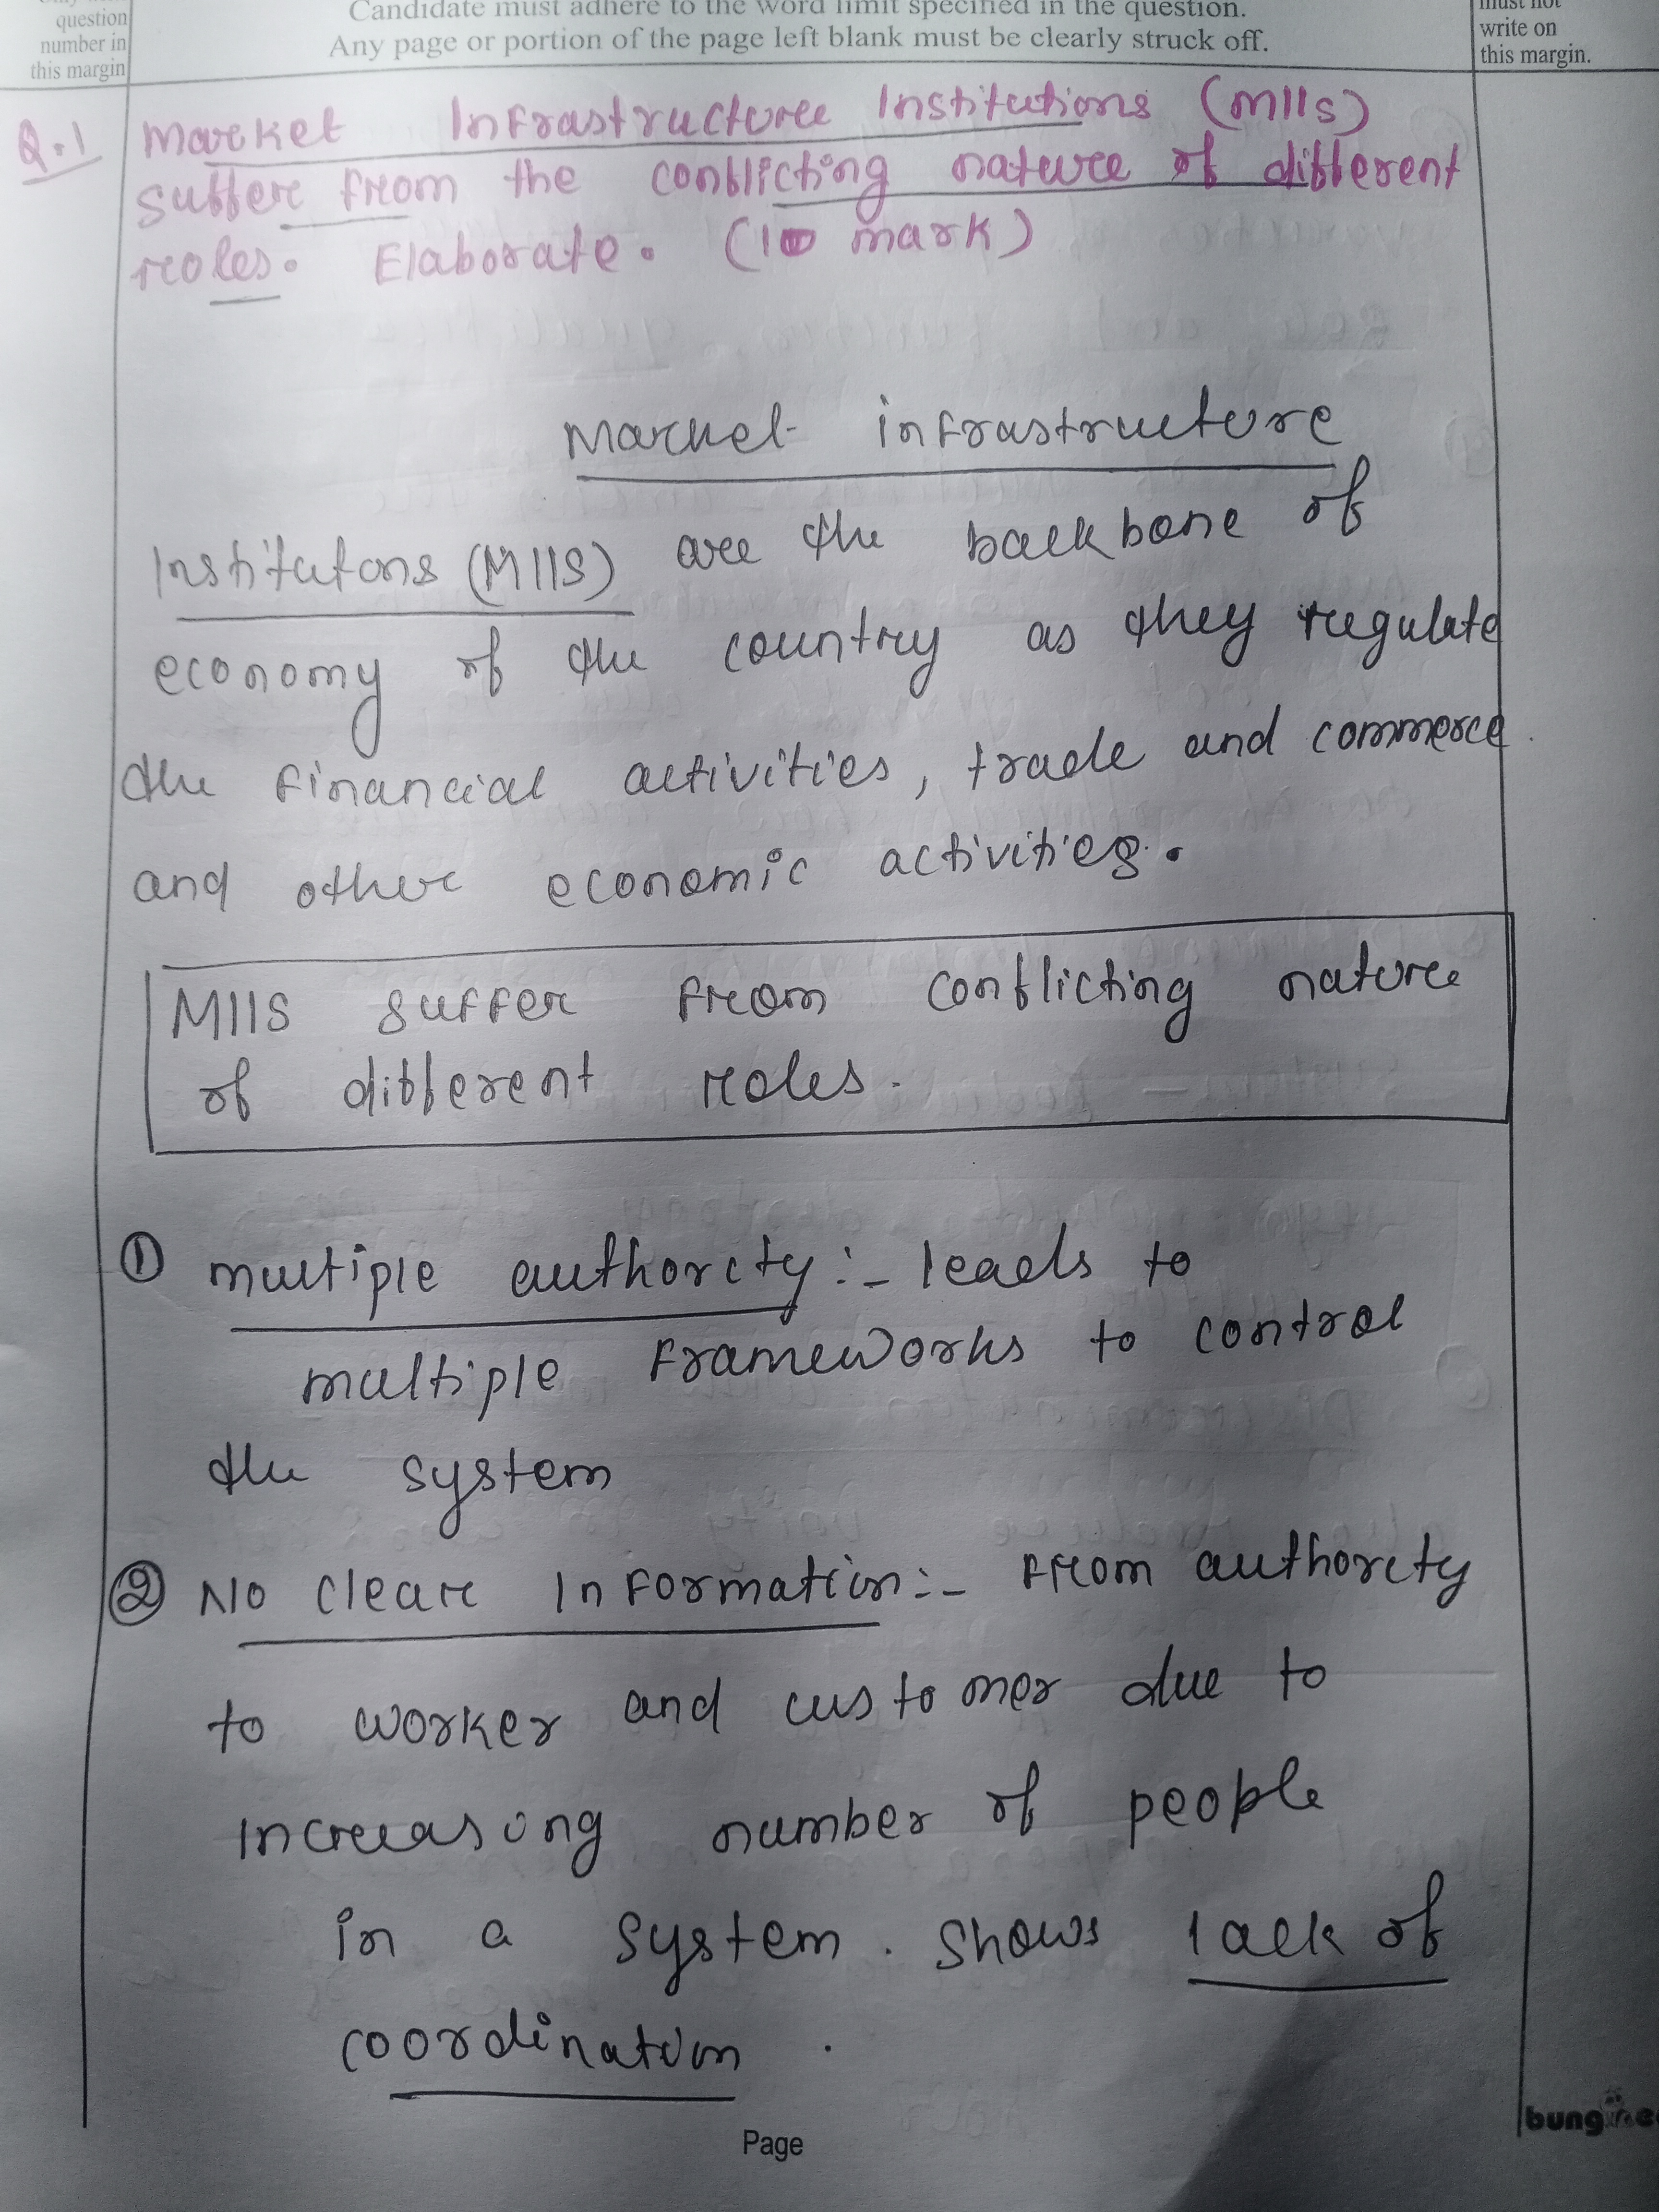 question
number in
this margin
Candidate must adhere to the word limit specified in the question.
Any page or portion of the page left blank must be clearly struck off.
must not
write on
this margin.
Q.1 Market Infrastructure Institutions (MIIs)
suffer from the conflicting nature of different
roles. Elaborate. (10 mark)
Market infrastructure
Institutons (MIIS) are the backbone of
economy of the country as they regulate
the financial activities, trade and commerce
and other economic activities.
MIIS suffer from conflicting nature
of different roles.
① multiple authority:- leads to
multiple frameworks to control
the system
② No clear information:- from authority
to worker and customer due to
increasing number of people
in a system. shows lack of
coordination.
Page